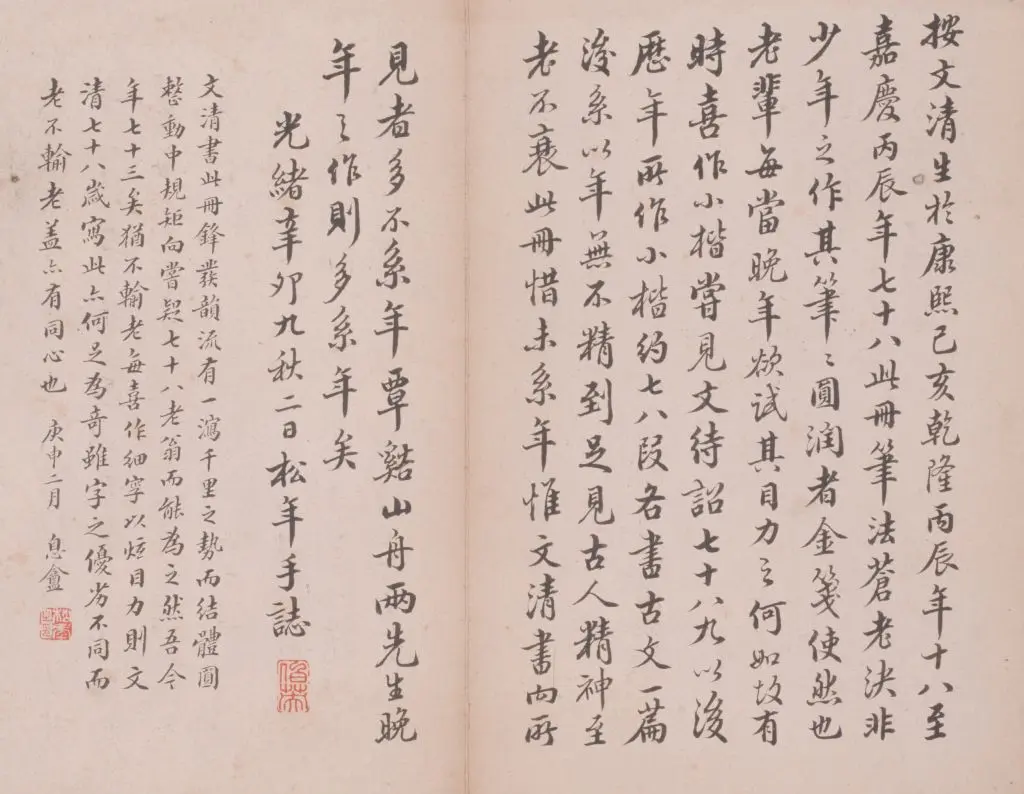 按文清生於康熙己亥乾隆丙辰年十八至
嘉慶丙辰年七十八此冊筆法蒼老決非
少年之作其筆〻圓潤者金箋使然也
老輩每當晚年欲試其目力之何如故有
時喜作小楷嘗見文待詔七十八九以後
歷年所作小楷約七八段各書古文一篇
後系以年無不精到足見古人精神至
老不衰此冊惜未系年惟文清書向所
見者多不系年覃谿山舟兩先生晚
年之作則多系年矣
光緒辛卯九秋二日松年手誌
文清書此冊鋒發韻流有一瀉千里之勢而結體圓
整動中規矩向嘗疑七十八老翁而能為之然吾今
年七十三矣猶不輸老每喜作細字以炫目力則文
清七十八歲寫此亦何足為奇雖字之優劣不同而
老不輸老盖亦有同心也 庚申二月 息盦